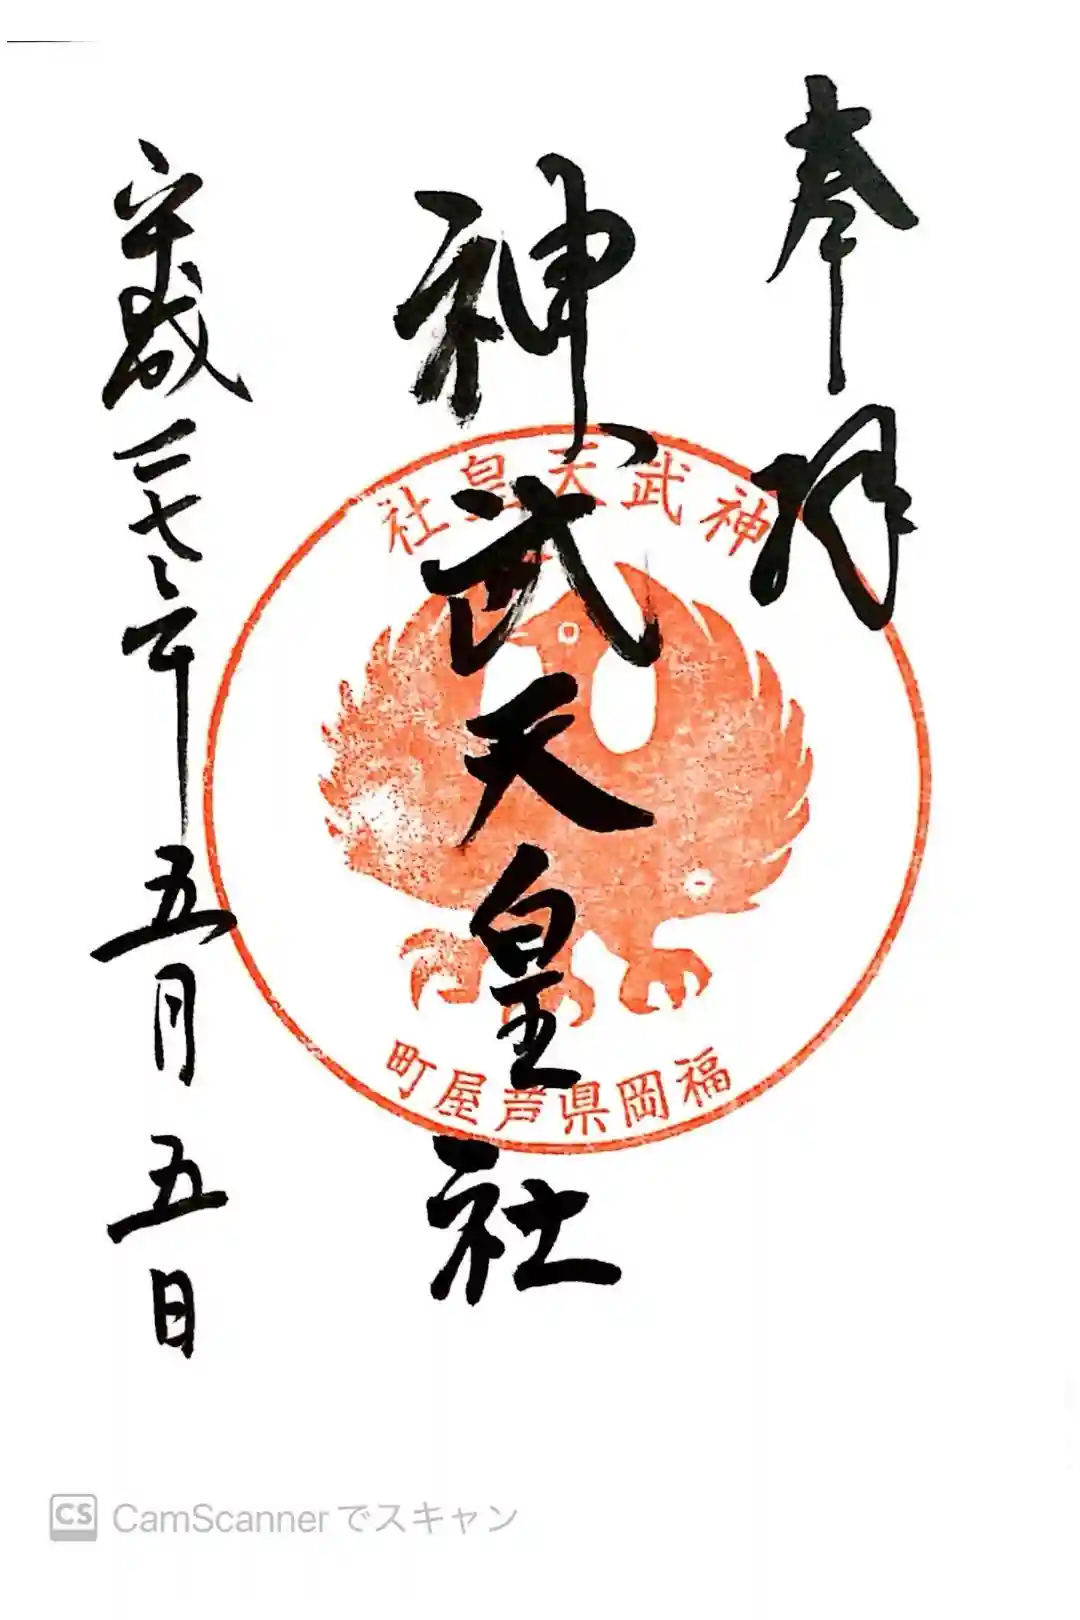 奉拝
神武天皇社
平成二七年
五月五日
神武天皇社
福岡県芦屋町
CS CamScannerでスキャン